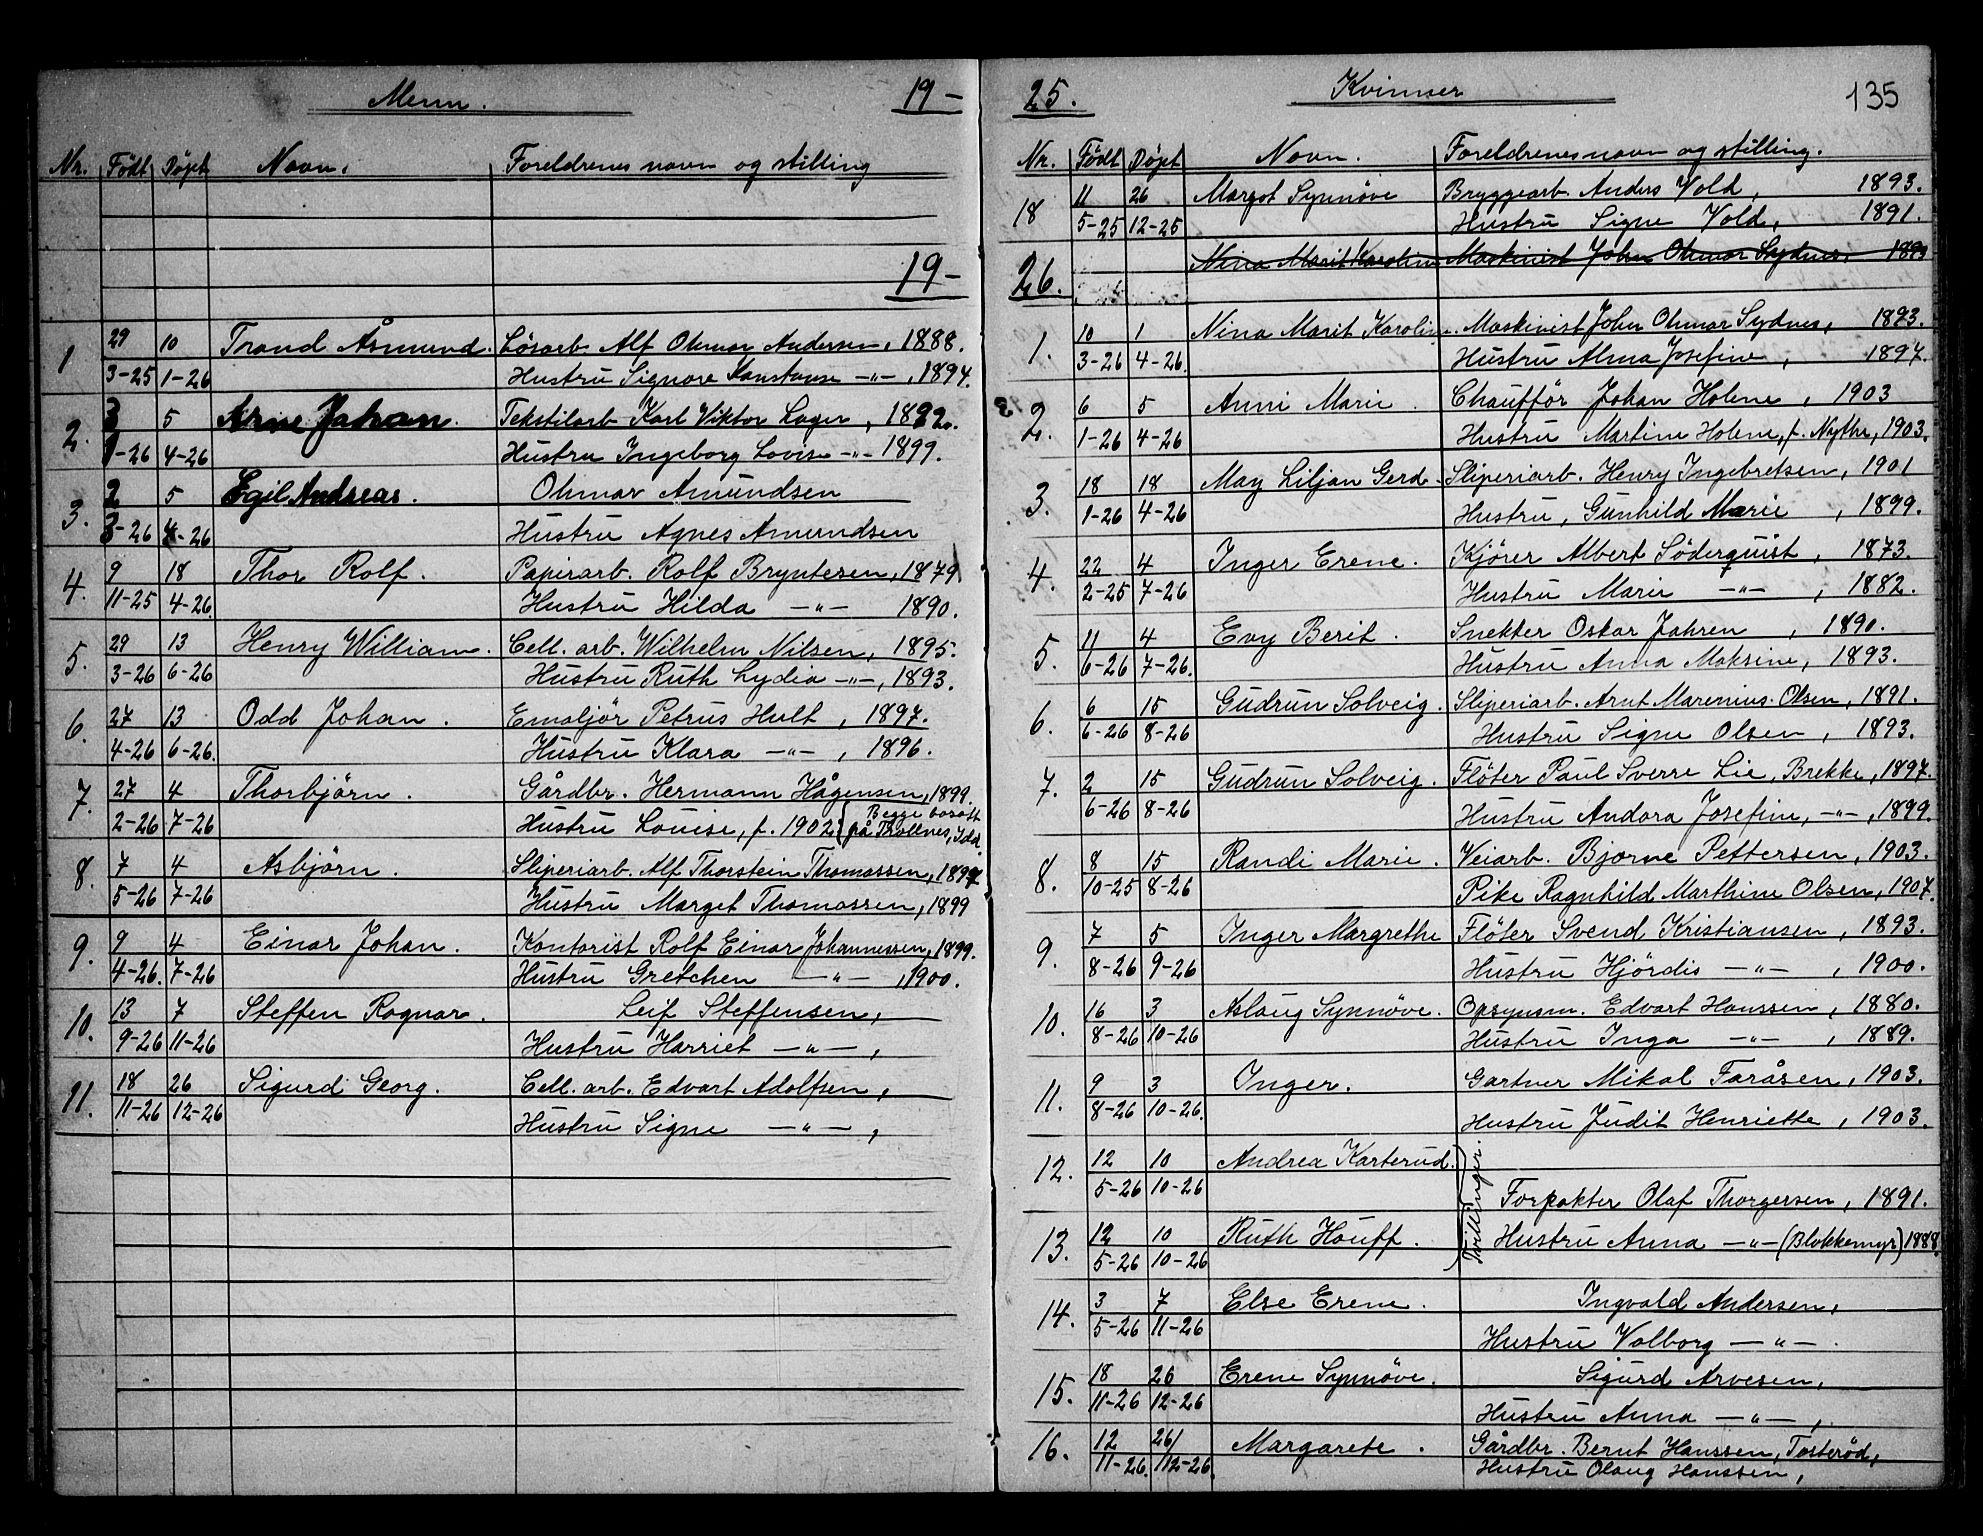 Menn. 19-
Nr. Født Døpt Navn. Foreldrenes navn og stilling
19-
1 29 10 Trond Åsmund. Løsarb. Alf Ohmar Andersen, 1888.
3-25 1-26 Hustru Signore Konstanse -"-, 1894.
2. 3 5 Arne Johan. Tekstilarb. Karl Viktor Lager, 1892.
1-26 4-26 Hustru Ingeborg Lovise -"- 1899.
3. 2 5 Egil Andreas. Ohmar Amundsen
3-26 4-26 Hustru Agnes Amundsen
4. 9 18 Thor Rolf. Papirarb. Rolf Bryntesen, 1879
11-25 4-26 Hustru Hilda -"- 1890.
5. 29 13 Henry William. Cell. arb. Wilhelm Nilsen, 1895.
3-26 6-26 Hustru Ruth Lydia -"-, 1893.
6. 27 13 Odd Johan. Emaljör Petrus Hult, 1897.
4-26 6-26. Hustru Klara -"-, 1896.
7. 27 4 Thorbjörn. Gårdbr. Hermann Hågensen, 1899.
2-26 7-26 Hustru Louise, f. 1902. (Begge bosatt på Thollnes, Idd.
8. 7 4 Asbjörn. Sliperiarb. Alf Thorstein Thomassen, 1897
5-26 7-26 Hustru Marget Thomassen, 1899
9. 9 4 Einar Johan. Kontorist Rolf Einar Johannessen, 1899.
4-26. 7-26 Hustru Gretchen -"-, 1900.
10. 13 7 Steffen Ragnar. Leif Steffensen,
9-26 11-26 Hustru Harriet -"-,
11. 18 26 Sigurd Georg. Cell. arb. Edvart Adolfsen,
11-26 12-26 Hustru Signe -"-,
25. Kvinner 135
Nr. Født Døpt Navn. Foreldrenes navn og stilling.
18 11 26 Margot Synnöve Bryggearb. Anders Vold, 1893.
5-25 12-25 Hustru Signe Vold, 1891.
26. Nina Marit Karoline Maskinist John Ohmar Sydnes, 1893
1. 10 1 Nina Marit Karoline. Maskinist John Ohmar Sydnes, 1893.
3-26 4-26. Hustru Alma Josefine, 1897.
2. 6 5 Anni Marie. Chaufför Johan Holene, 1903
1-26 4-26 Hustru Martine Holene, f. Nythe, 1903.
3. 18 18 May Liljan Gerd. Sliperiarb. Henry Ingebretsen, 1901
1-26 4-26 Hustru, Gunhild Marie, 1899.
4. 22 4 Inger Erene. Kjörer Albert Söderquist, 1873.
2-25 7-26 Hustru Marie -"-, 1882.
5. 11 4 Evy Berit. Snekker Oskar Jahren, 1890.
6-26 7-26. Hustru Anna Maksine, 1893.
6. 6 15 Gudrun Solveig. Sliperiarb. Arnt Marenius Olsen, 1891.
6-26 8-26 Hustru Signe Olsen, 1893.
7. 2 15 Gudrun Solveig. Flöter Paul Sverre Lie, Brekke, 1897.
6-26 8-26 Hustru Andora Josefine, -"-, 1899.
8. 8 15 Randi Marie. Veiarb. Bjarne Pettersen, 1903.
10-25 8-26 Pike Ragnhild Marthine Olsen, 1907.
9. 7 5 Inger Margrethe Flöter Svend Kristiansen, 1893.
8-26 9-26 Hustru Hjördis -"-, 1900.
10. 16 3 Aslaug Synnöve. Opsynsm. Edvart Hanssen, 1880.
8-26 10-26 Hustru Inga -"-, 1889.
11. 9 3 Inger. Gartner Mikal Faråsen, 1903.
8-26 10-26. Hustru Judit Henriette, 1903.
12. 12 10 Andrea Karterud.
5-26 10-26 Tvillinger Forpakter Olaf Thorgersen, 1891.
13. 12 10 Ruth Houff. Hustru Anna -"- (Blokkemyr) 1888.
5-26 10-26
14. 3 7 Else Erene. Ingvald Andersen,
5-26 11-26 Hustru Valborg -"-.
15. 18 26 Erene Synnöve. Sigurd Arvesen,
11-26 12-26 Hustru Anna -"-,
16. 12 26/ Margarete. Gårdbr. Bernt Hanssen, Tosteröd,
11-26. 12-26. Hustru Olaug Hanssen,